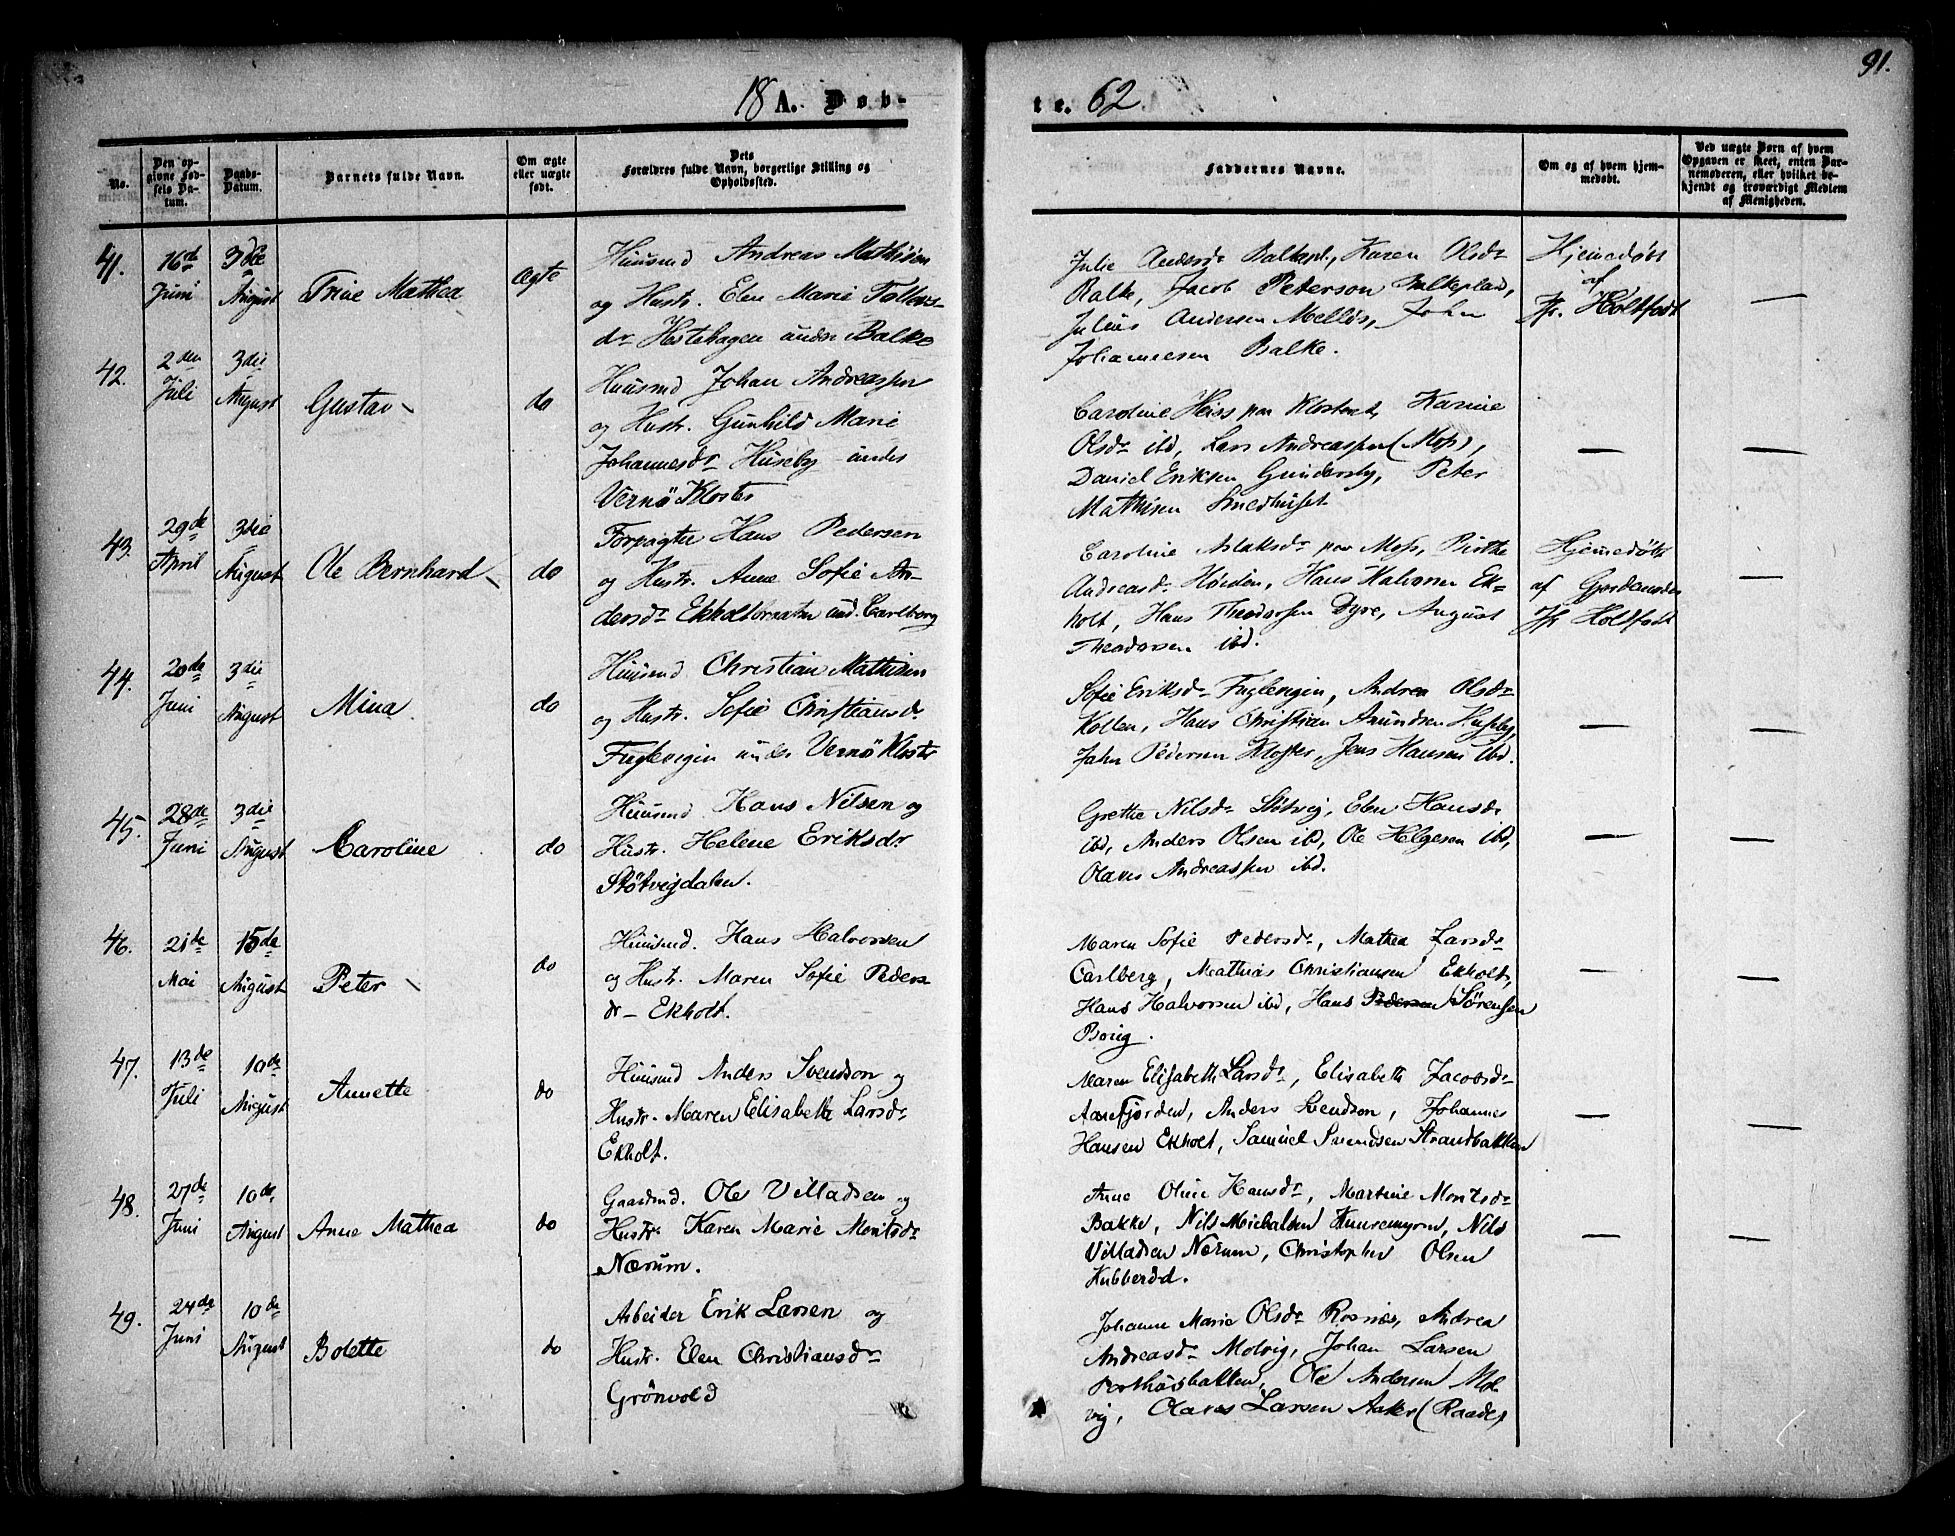 18 A. Døb-
te. 62.
91.
No.
Den op-
givne Fød-
sels Da-
tum.
Daabs-
Datum.
Barnets fulde Navn.
Om ægte
eller uægte
født.
Dets
Forældres fulde Navn, borgerlige Stilling og
Opholdssted.
Faddernes Navne.
Om og af hvem hjem-
medøbt.
Ved uægte Børn af hvem
Opgaven er skeet, enten Bar-
nemoderen, eller hvilket be-
kjendt og troværdigt Medlem
af Menigheden.
41.
16de
Juni
3die
August
Trine Mathea
Ægte
Huusmd Andreas Mathisen
og Hustr. Elen Marie Tollefs-
dr Hestehagen under Balke
Julie Andersdr Balkepl., Karen Olsdr
Balke, Jacob Peterson Balkeplad,
Julius Andersen Melløs, John
Johannesen Balke.
Hjemedøbt
af
Jfr. Holtfodt
—
42.
2den
Juli
3die
August
Gustav
do
Huusmd Johan Andreassen
og Hustr. Gunhild Marie
Johannesdr Huseby under
Vernö Kloster
Caroline Heiss paa Klostret, Karine
Olsdr ibd, Lars Andreassen (Moss),
Daniel Eriksen Gundersby, Peter
Mathisen Smedhuset
—
—
43.
29de
April
3die
August
Ole Bernhard
do
Forpagter Hans Pedersen
og Hustr. Anne Sofie An-
dersdr und. Carlberg
Caroline Aslaksdr paa Moss, Birthe
Andreasdr Høiden, Hans Halvorsen Ek-
holt, Hans Theodorsen Dyre, August
Theodorsen ibd.
Hjemedøbt
af Gjordemoder
Jfr Holtfodt
—
44.
20de
Juni
3die
August
Mina
do
Huusmd Christian Mathisen
og Hustr. Sofie Christiansdr
Fuglevigen under Vernö Kloster
Sofie Eriksdr Fuglevigen, Andrea Olsdr
Kollen, Hans Christian Amundsen Husseby,
John Pedersen Kloster, Jens Hansen ibd.
—
—
45.
28de
Juni
3die
August
Caroline
do
Huusmd. Hans Nilsen og
Hustr. Helene Eriksdr
Støtvigdalen.
Grethe Nilsdr Støtvig, Elen Hansdr
ibd, Anders Olsen ibd, Ole Helgesen ibd,
Olaves Andreassen ibd.
—
—
46.
21de
Mai
15de
August
Peter
do
Huusmd. Hans Halvorsen
og Hustr. Maren Sofie Peders-
dr - Ekholt.
Maren Sofie Pedersdr, Mathea Larsdr
Carlberg, Mathias Christiansen Ekholt,
Hans Halvorsen ibd, Hans Pedersen Sörensen
Borig.
—
—
47.
13de
Juli
10de
August
Annette
do
Huusmd Anders Svendson og
Hustr. Maren Elisabeth Larsdr
Ekholt.
Maren Elisabeth Larsdr, Elisabeth Jacobsdr
Aarefjorden, Anders Svendson, Johannes
Hansen Ekholt, Samuel Svendsen Strandbakken
—
—
48.
27de
Juni
10de
August
Anne Mathea
do
Gaardmd. Ole Villadsen og
Hustr. Karen Marie Moritsdr
Nærum.
Anne Oline Hansdr, Martine Moritsdr
Bakke, Nils Michalsen Knurremyren, Nils
Villadsen Nærum, Christopher Olsen
Kubberöd.
—
—
49.
24de
Juni
10de
August
Bolette
do
Arbeider Erik Larsen og
Hustr. Elen Christiansdr
Grönvold
Johanne Marie Olsdr Rosnæs, Andrea
Andreasdr Molvig, Johan Larsen
Ole Andersen Mol-
vig, Olaves Larsen Aaker (Raade)